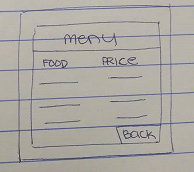 menu
FOOD PRICE
BACK